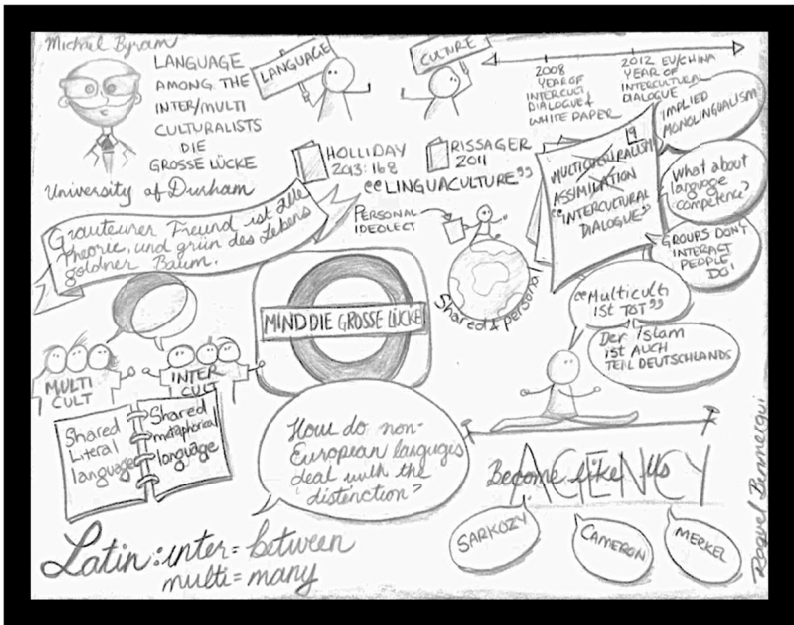 Michael Byram
LANGUAGE
AMONG THE
INTER/MULTI
CULTURALISTS
DIE
GROSSE LÜCKE
University of Durham
LANGUAGE
CULTURE
2008
YEAR OF
INTERCULT
DIALOGUE &
WHITE PAPER
2012 EU/CHINA
YEAR OF
INTERCULTURAL
DIALOGUE
HOLLIDAY
2013:168
RISSAGER
2011
"LINGUACULTURE"
PERSONAL
IDEOLECT
Shared & personal
MULTICULTURALISM
ASSIMILATION
"INTERCULTURAL
DIALOGUE"
IMPLIED
MONOLINGUALISM
What about
language
competence?
GROUPS DON'T
INTERACT
PEOPLE
DO!
Grauteurer Freund ist alle
Theorie, und grün des Lebens
goldner Baum.
MIND DIE GROSSE LÜCKE
"Multiculti
IST TOT"
Der Islam
ist AUCH
TEIL DEUTSCHLANDS
MULTI
CULT
INTER
CULT
Shared
Literal
language
Shared
metaphorical
language
How do non-
European languages
deal with the
distinction?
AGENCY
Become like us
SARKOZY
CAMERON
MERKEL
Latin: inter = between
multi = many